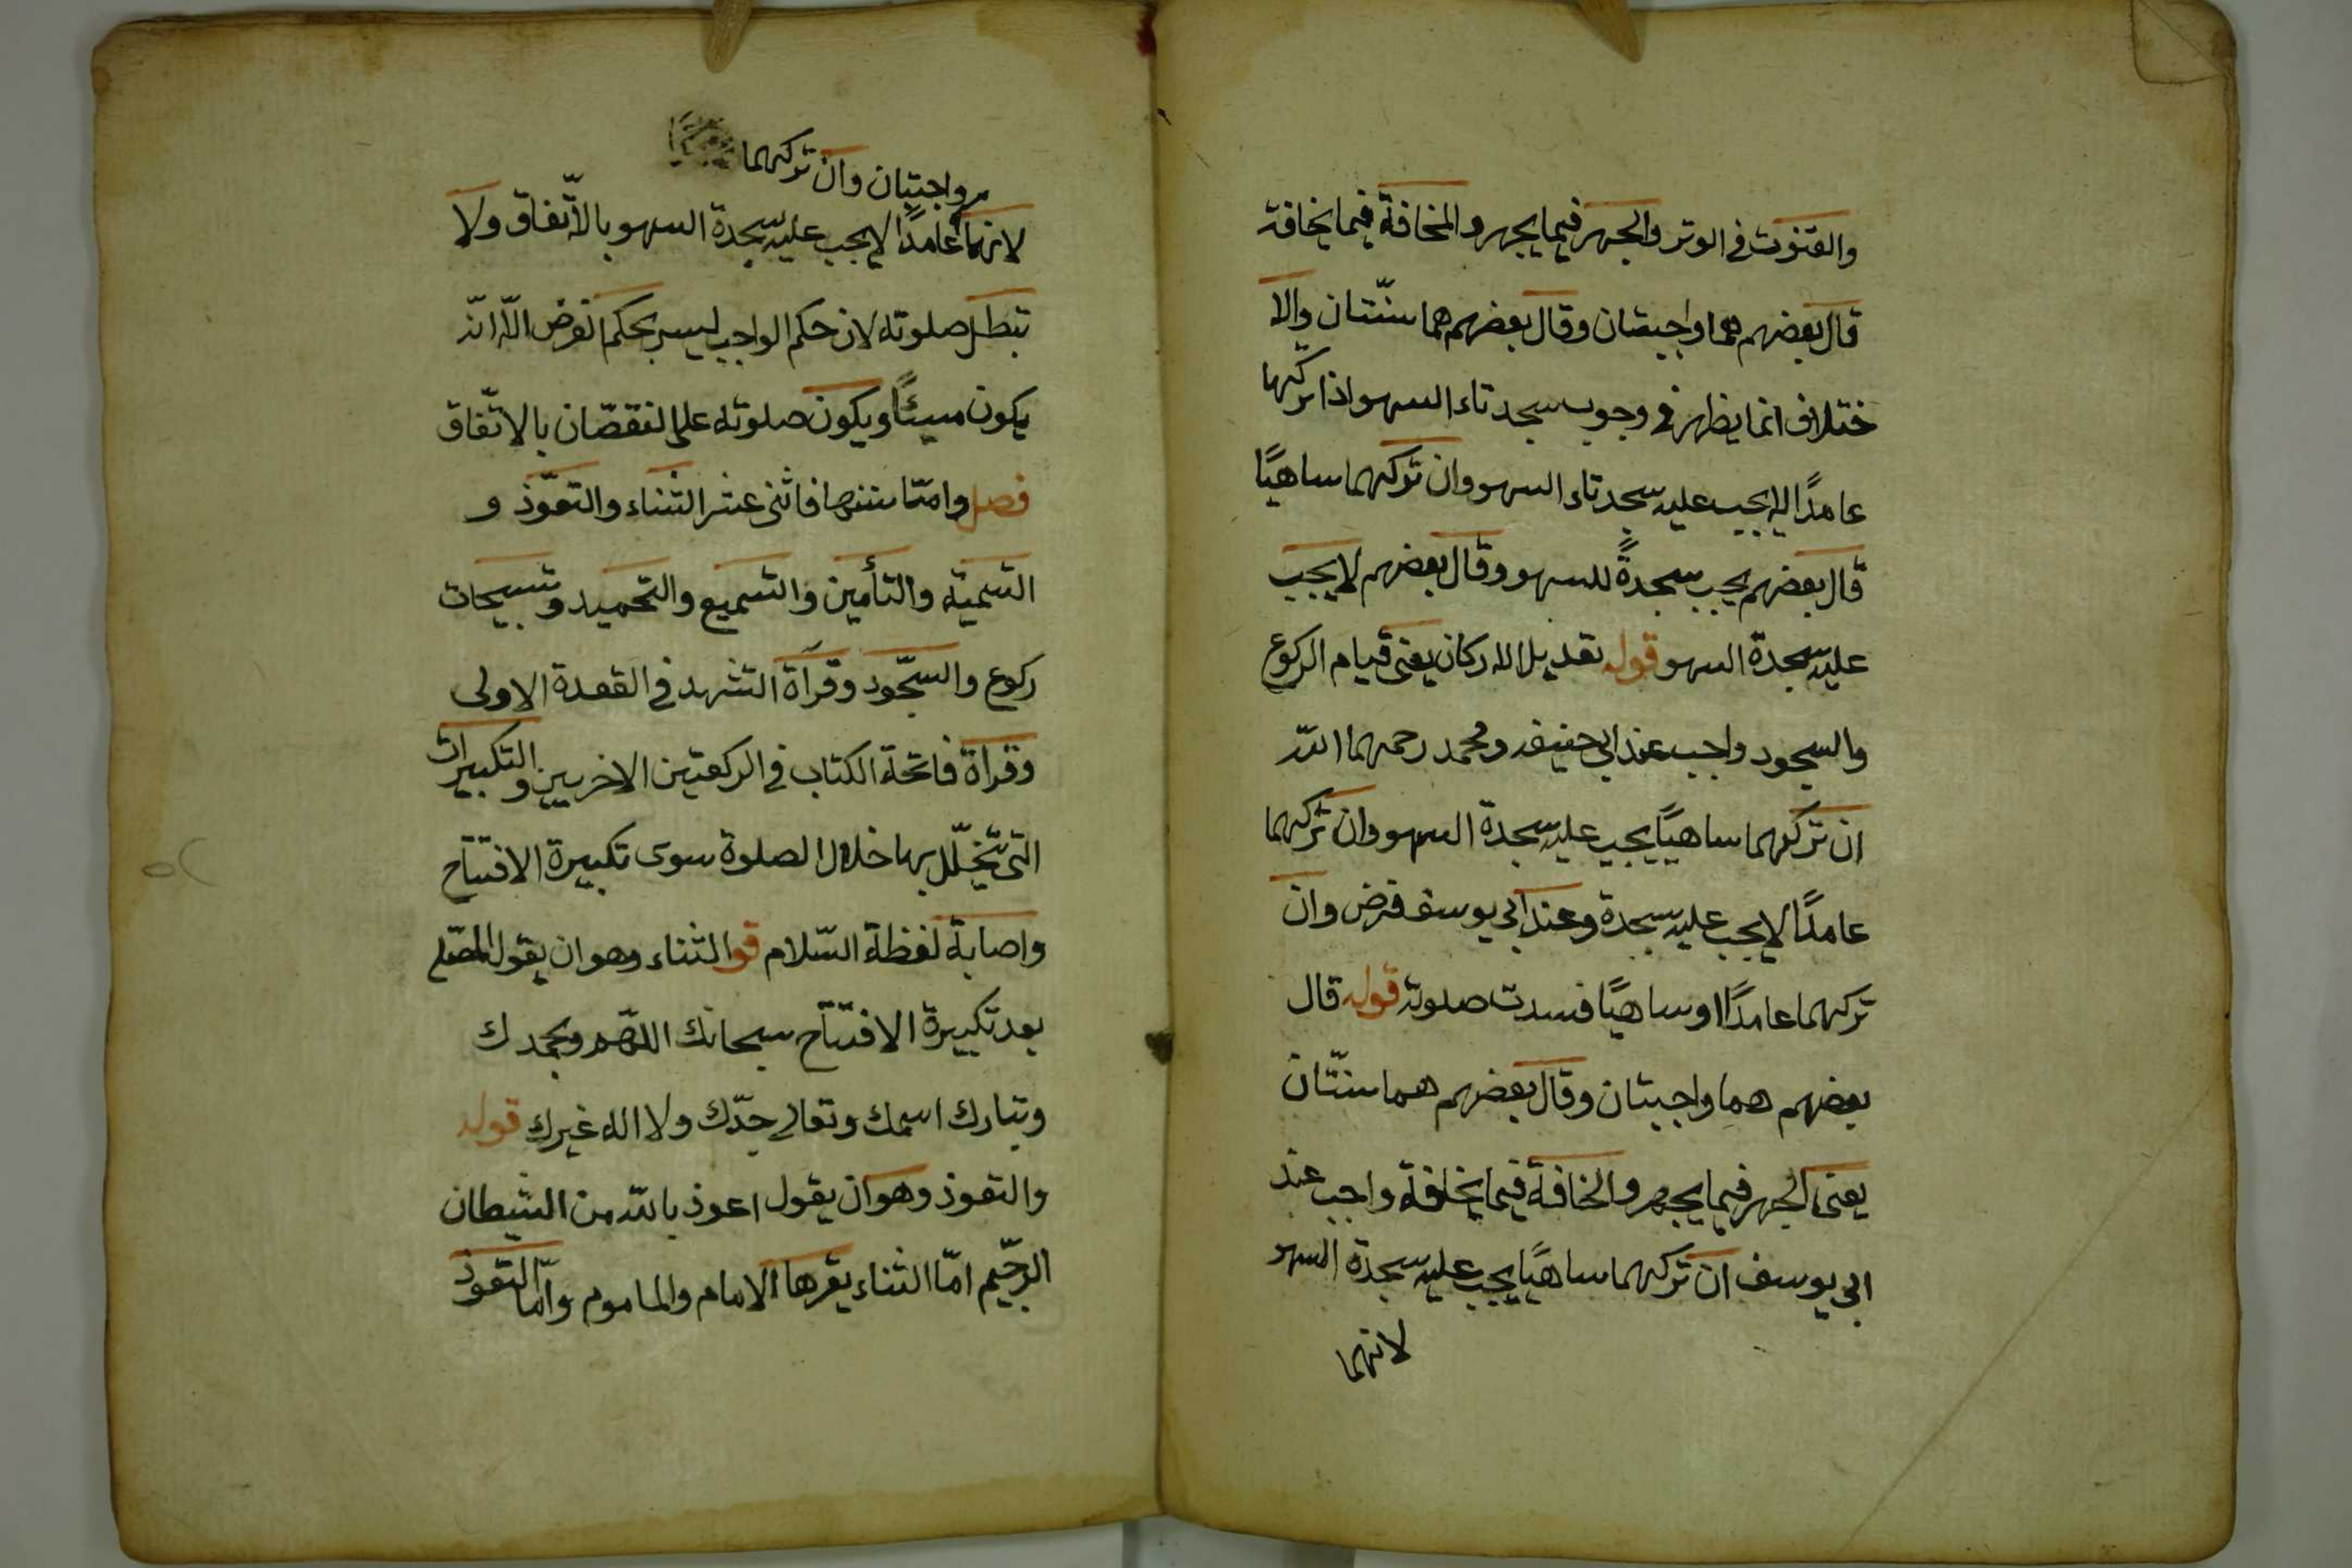 والقنوت في الوتر والجهر فيما يجهر والمخافة فيما يخافة
قال بعضهم هما واجبتان وقال بعضهم هما سنّتان والا
ختلاف انما يظهر في وجوب سجدتاء السهو اذا تركها
عامدًا لا يجب عليه سجدتاء السهو وان تركهما ساهيًا
قال بعضهم يجب سجدةً للسهو وقال بعضهم لا يجب
عليه سجدة السهو قوله تعديل الاركان يعنى قيام الركوع
والسجود واجب عند ابي حنيفه ومحمد رحمهما الله
ان تركهما ساهيًا يجب عليه سجدة السهو وان تركهما
عامدًا لا يجب عليه سجدة وعند ابي يوسف فرض وان
تركهما عامدًا او ساهيًا فسدت صلوته قوله قال
بعضهم هما واجبتان وقال بعضهم هما سنتّان
يعنى الجهر فيما يجهر والخافة فيما يخافة واجب عند
ابي يوسف ان تركهما ساهيًا يجب عليه سجدة السهو
لانهما
واجبتان وان تركهما
لانهما عامدًا لا يجب عليه سجدة السهو بالاتّفاق ولا
تبطل صلوته لان حكم الواجب ليس بحكم الفرض الّا انّه
يكون مسيئًا ويكون صلوته على النقصّان بالاتّفاق
فصل وامّا سننها فاثنى عشر الثّناء والتعوّذ و
التسمية والتأمين والتسميع والتحميد وتسبيحات
ركوع والسجّود وقرآة التشهد في القعدة الاولى
وقرآة فاتحة الكتاب في الركعتين الاخريين والتكبيرات
التى تتخلّل بها خلال الصلوة سوى تكبيرة الافتتاح
واصابة لفظة السّلام قو الثناء وهو ان يقول المصّلي
بعد تكبيرة الافتتاح سبحانك اللهّم وبحمدك
وتبارك اسمك وتعالى جدّك ولا اله غيرك قوله
والتعوذ وهو ان يقول اعوذ بالله من الشيطان
الرجّيم امّا الثناء يقرها الامام والماموم وامّا التعوذ